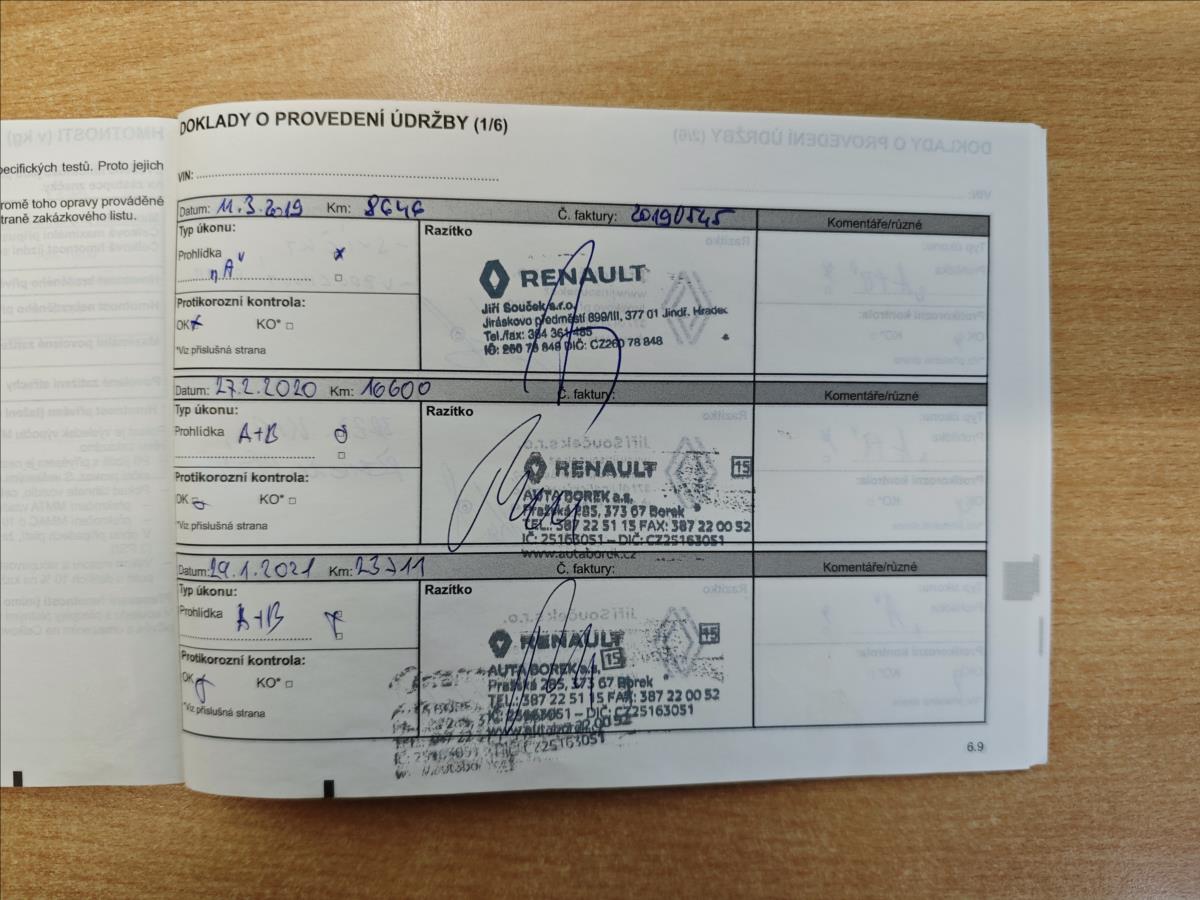 pecifických testů. Proto jejich
romě toho opravy prováděné
traně zakázkového listu.
DOKLADY O PROVEDENÍ ÚDRŽBY (1/6)
VIN:
Datum: 11.3.2019 Km: 8646 Č. faktury: 20190545
Komentáře/různé
Typ úkonu:
Prohlídka
"A"
Protikorozní kontrola:
OK KO*
*Viz příslušná strana
Razítko
RENAULT
Jiří Souček s.r.o.
Jiráskovo předměstí 899/III, 377 01 Jindř. Hradec
Tel./fax: 384 361 485
IČ: 260 78 848 DIČ: CZ260 78 848
Datum: 27.2.2020 Km: 16600 Č. faktury:
Komentáře/různé
Typ úkonu:
Prohlídka A+B
Protikorozní kontrola:
OK KO*
*Viz příslušná strana
Razítko
RENAULT 15
AUTA BOREK a.s.
Pražská 285, 373 67 Borek
TEL.: 387 22 51 15 FAX: 387 22 00 52
IČ: 25163051 – DIČ: CZ25163051
www.autaborek.cz
Datum: 29.1.2021 Km: 23711 Č. faktury:
Komentáře/různé
Typ úkonu:
Prohlídka A+B
Protikorozní kontrola:
OK KO*
*Viz příslušná strana
Razítko
RENAULT 15
AUTA BOREK a.s. 15
Pražská 285, 373 67 Borek
TEL.: 387 22 51 15 FAX: 387 22 00 52
IČ: 25163051 – DIČ: CZ25163051
6.9